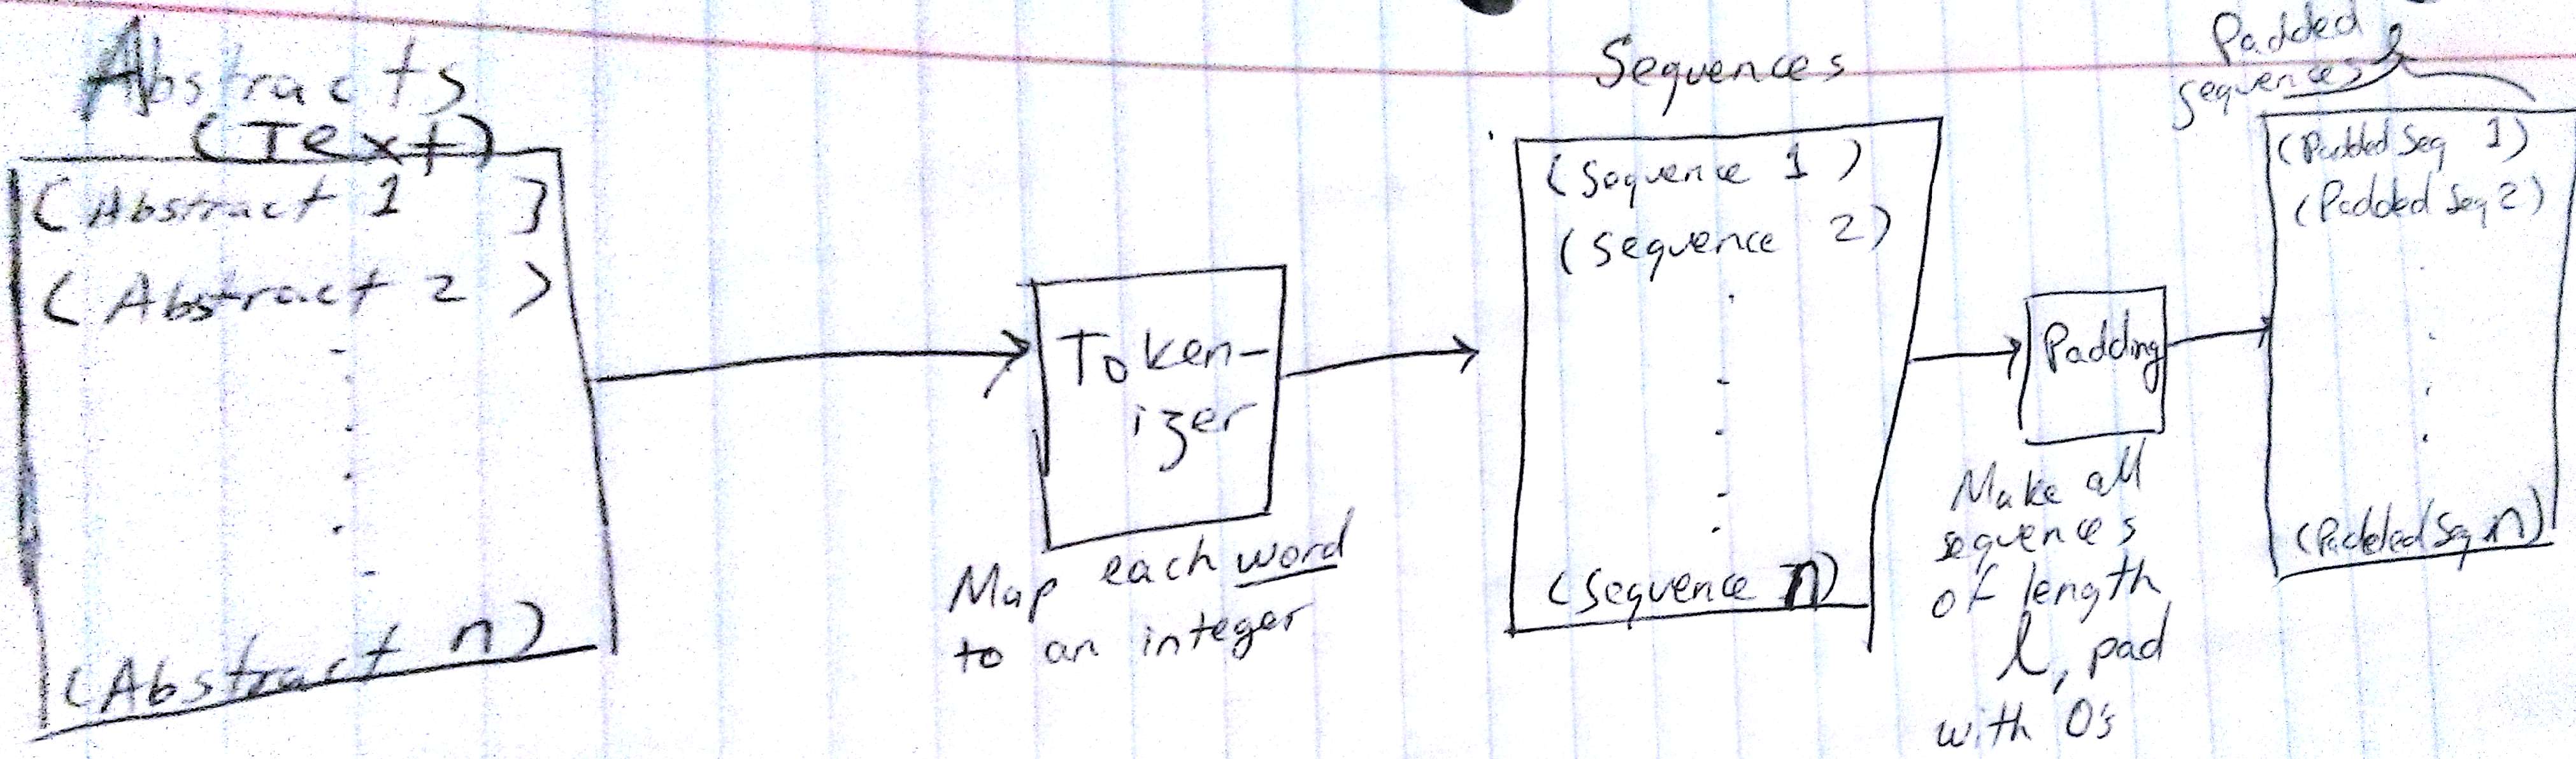 Abstracts
(Text)
(Abstract 1)
(Abstract 2)
(Abstract n)
Token-
izer
Map each word
to an integer
Sequences
(Sequence 1)
(Sequence 2)
(Sequence n)
Padding
Make all
sequences
of length
l, pad
with 0's
Padded
sequences
(Padded Seq 1)
(Padded Seq 2)
(Padded Seq n)